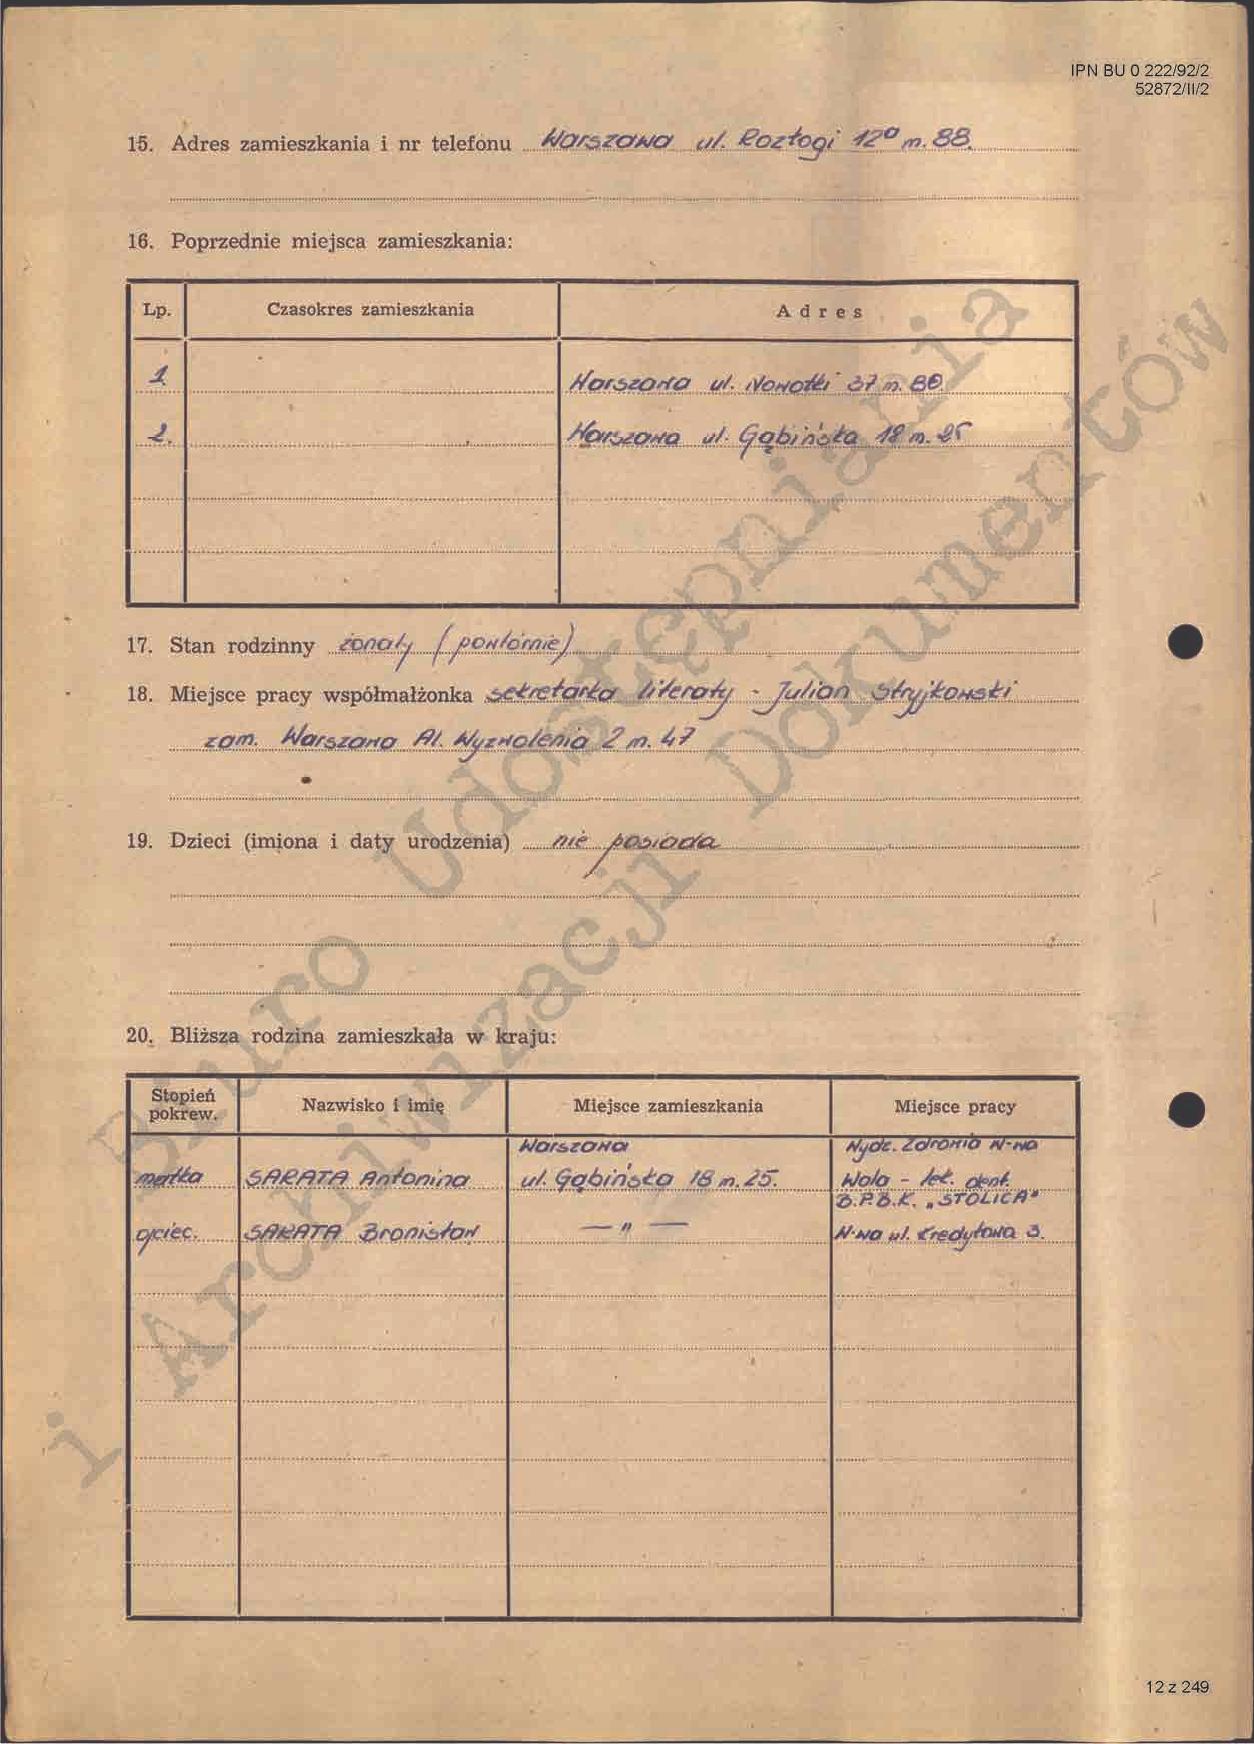 IPN BU 0 222/92/2
52872/II/2
15. Adres zamieszkania i nr telefonu Warszawa ul. Roztogi 12a m. 88.
16. Poprzednie miejsca zamieszkania:
Lp. Czasokres zamieszkania Adres
1. Warszawa ul. Nowotki 37 m. 80
2. Warszawa ul. Gąbińska 18 m. 25
17. Stan rodzinny żonaty (powtórnie)
18. Miejsce pracy współmałżonka sekretarka literaty - Julian Stryjkowski
zam. Warszawa Al. Wyzwolenia 2 m. 47
19. Dzieci (imiona i daty urodzenia) nie posiada
20. Bliższa rodzina zamieszkała w kraju:
Stopień pokrew. Nazwisko i imię Miejsce zamieszkania Miejsce pracy
Warszawa Wydz. Zdrowia W-wa
matka SARATA Antonina ul. Gąbińska 18 m. 25. Wola - lek. dent.
B.P.B.K. „STOLICA"
ojciec. SARATA Bronisław — „ — W-wa ul. Kredytowa 3.
Biuro Udostępniania
i Archiwizacji Dokumentów
12 z 249